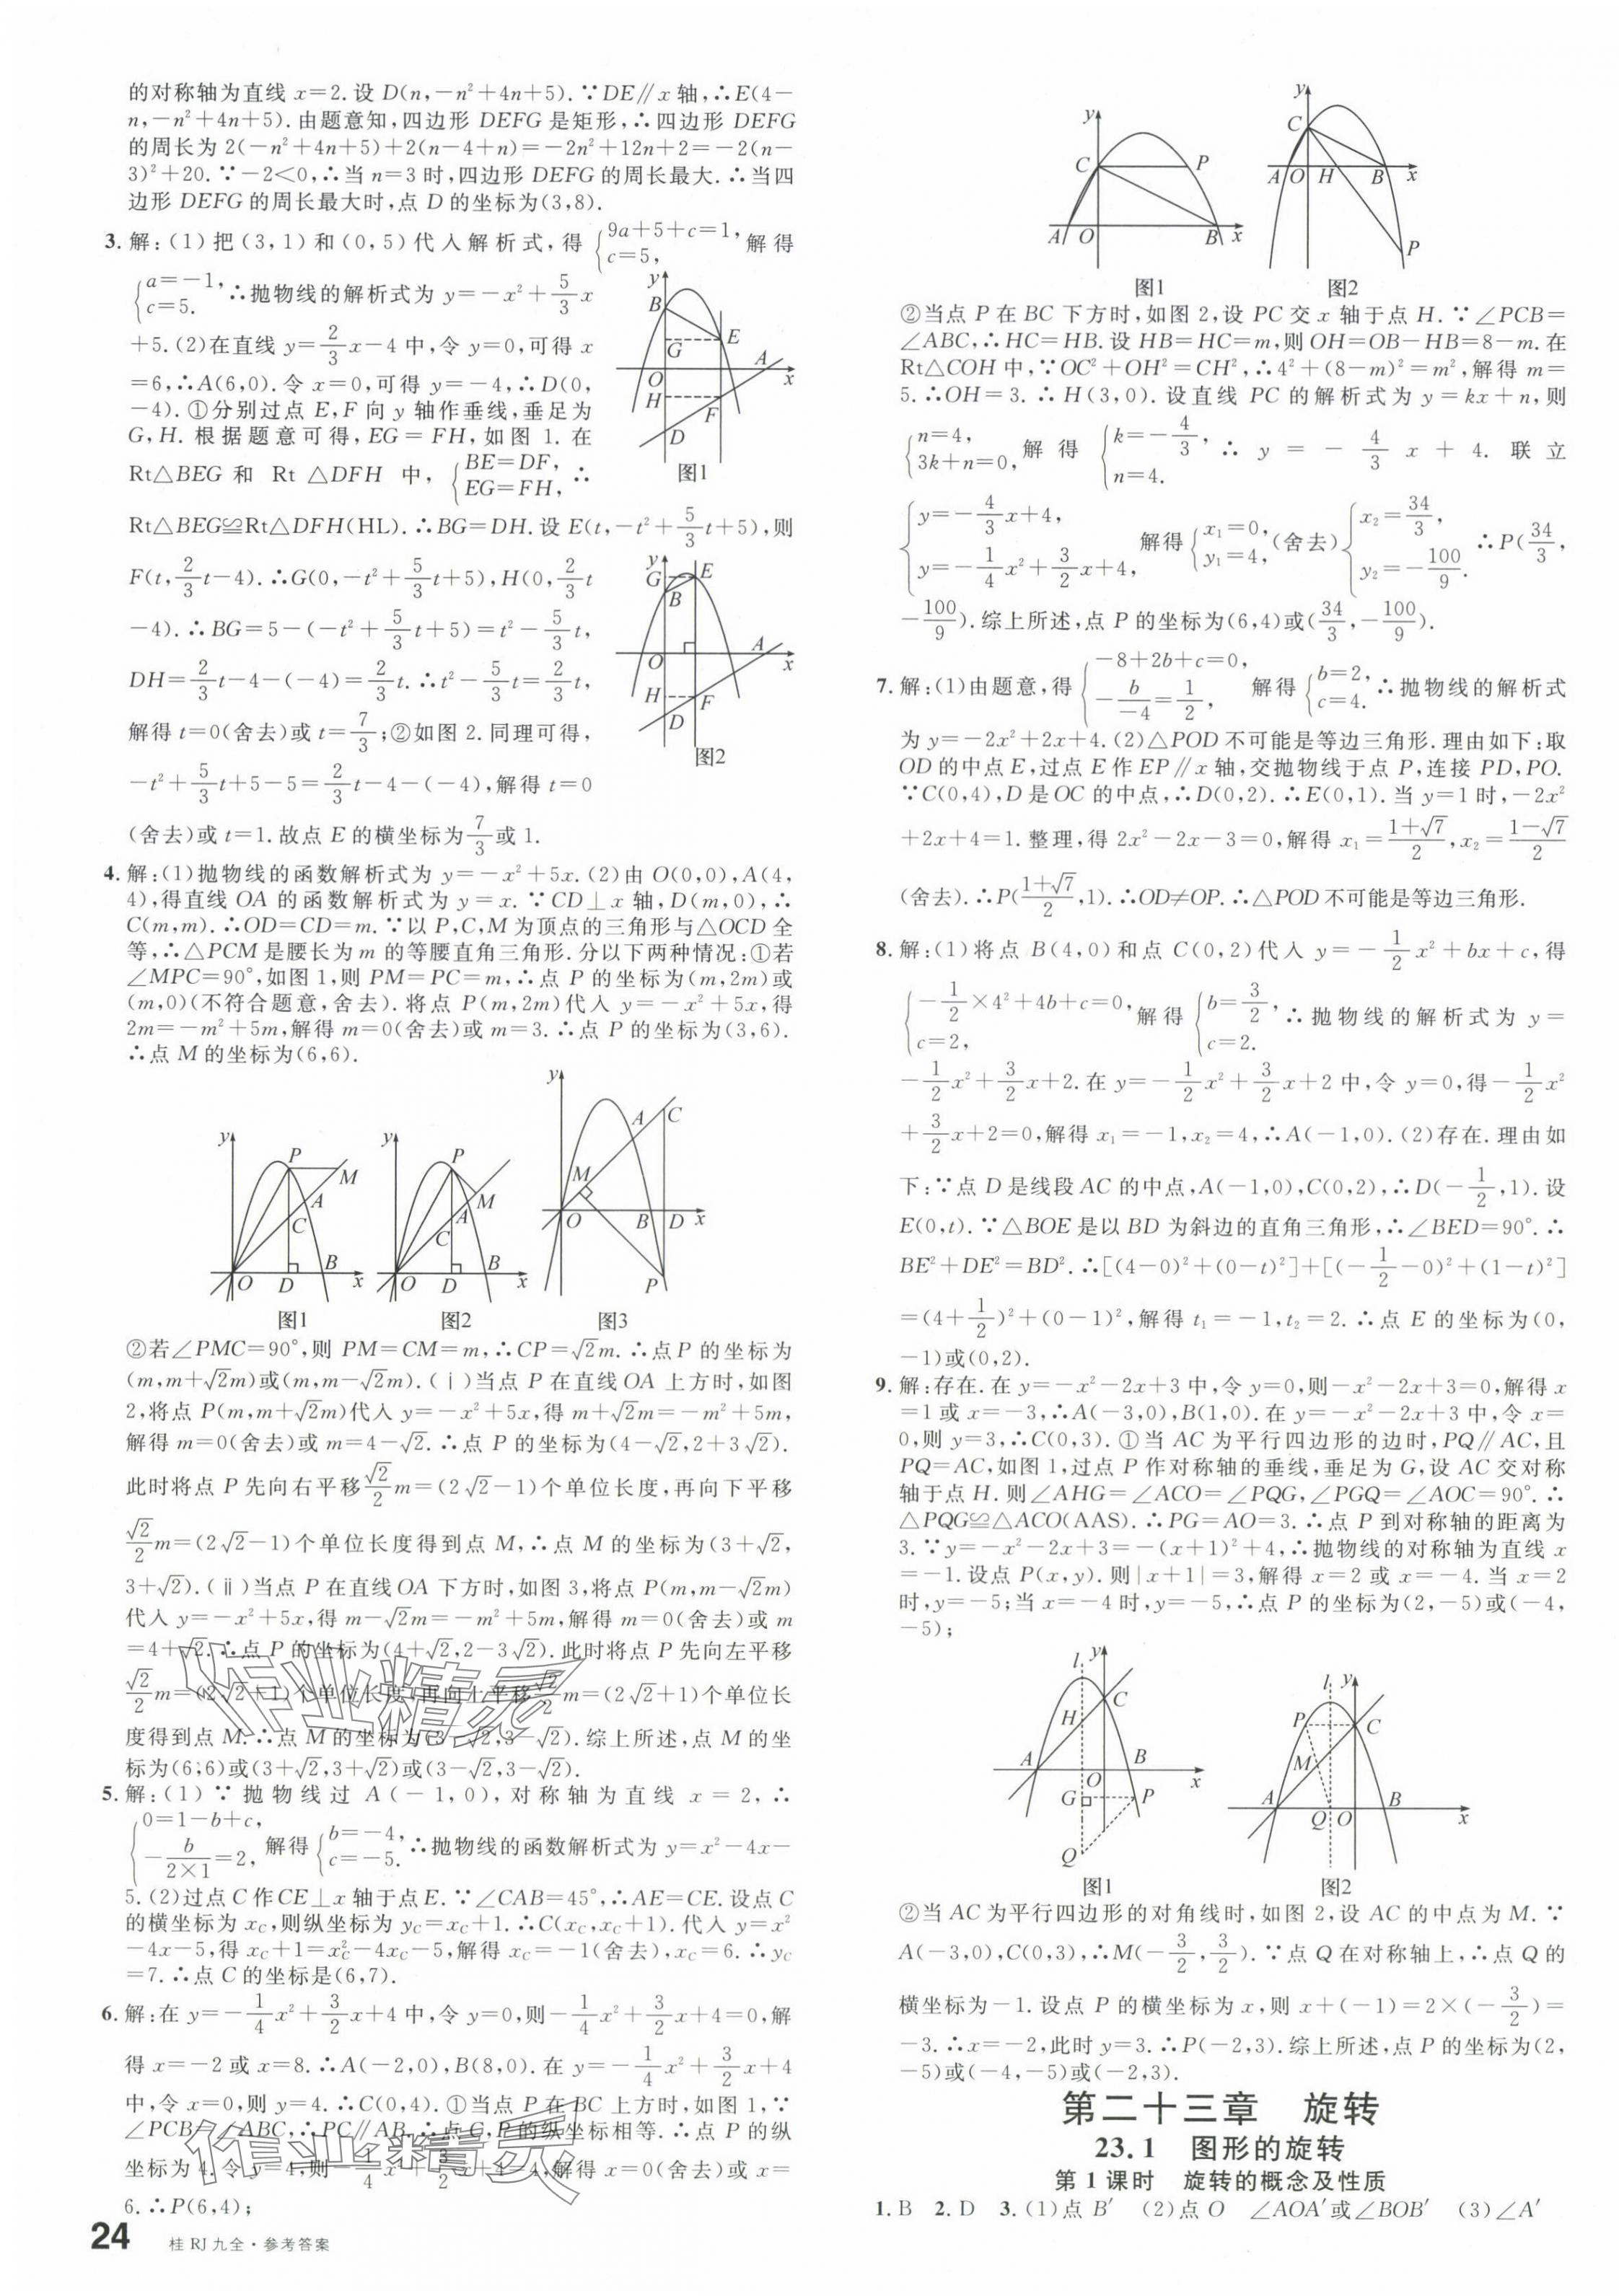 的对称轴为直线 x=2.设 D(n,-n²+4n+5).∵DE∥x 轴,∴E(4-
n,-n²+4n+5).由题意知,四边形 DEFG 是矩形,∴四边形 DEFG
的周长为 2(-n²+4n+5)+2(n-4+n)=-2n²+12n+2=-2(n-
3)²+20.∵-2<0,∴当 n=3 时,四边形 DEFG 的周长最大.∴当四
边形 DEFG 的周长最大时,点 D 的坐标为(3,8).
3.解:(1)把(3,1)和(0,5)代入解析式,得{9a+5+c=1, c=5, 解得
{a=-1, c=5. ∴抛物线的解析式为 y=-x²+5/3x
+5.(2)在直线 y=2/3x-4 中,令 y=0,可得 x
=6,∴A(6,0).令 x=0,可得 y=-4,∴D(0,
-4).①分别过点 E,F 向 y 轴作垂线,垂足为
G,H.根据题意可得,EG=FH,如图 1.在
Rt△BEG 和 Rt△DFH 中,{BE=DF, EG=FH, ∴
Rt△BEG≌Rt△DFH(HL).∴BG=DH.设 E(t,-t²+5/3t+5),则
F(t,2/3t-4).∴G(0,-t²+5/3t+5),H(0,2/3t
-4).∴BG=5-(-t²+5/3t+5)=t²-5/3t,
DH=2/3t-4-(-4)=2/3t.∴t²-5/3t=2/3t,
解得 t=0(舍去)或 t=7/3;②如图 2.同理可得,
-t²+5/3t+5-5=2/3t-4-(-4),解得 t=0
(舍去)或 t=1.故点 E 的横坐标为7/3或 1.
y B E G A O x H F D
图1
y G E B A O x H F D
图2
4.解:(1)抛物线的函数解析式为 y=-x²+5x.(2)由 O(0,0),A(4,
4),得直线 OA 的函数解析式为 y=x.∵CD⊥x 轴,D(m,0),∴
C(m,m).∴OD=CD=m.∵以 P,C,M 为顶点的三角形与△OCD 全
等,∴△PCM 是腰长为 m 的等腰直角三角形.分以下两种情况:①若
∠MPC=90°,如图 1,则 PM=PC=m,∴点 P 的坐标为(m,2m)或
(m,0)(不符合题意,舍去).将点 P(m,2m)代入 y=-x²+5x,得
2m=-m²+5m,解得 m=0(舍去)或 m=3.∴点 P 的坐标为(3,6).
∴点 M 的坐标为(6,6).
y P M A C O D B x
y P M A C O D B x
y A C M O B D x P
图1 图2 图3
②若∠PMC=90°,则 PM=CM=m,∴CP=√2m.∴点P 的坐标为
(m,m+√2m)或(m,m-√2m).(ⅰ)当点 P 在直线OA 上方时,如图
2,将点 P(m,m+√2m)代入 y=-x²+5x,得 m+√2m=-m²+5m,
解得 m=0(舍去)或 m=4-√2.∴点 P 的坐标为(4-√2,2+3√2).
此时将点 P 先向右平移√2/2m=(2√2-1)个单位长度,再向下平移
√2/2m=(2√2-1)个单位长度得到点 M,∴点 M 的坐标为(3+√2,
3+√2).(ⅱ)当点 P 在直线OA 下方时,如图 3,将点 P(m,m-√2m)
代入 y=-x²+5x,得 m-√2m=-m²+5m,解得 m=0(舍去)或 m
=4+√2.∴点 P 的坐标为(4+√2,2-3√2).此时将点 P 先向左平移
√2/2m=(2√2+1)个单位长度,再向上平移√2/2m=(2√2+1)个单位长
度得到点 M.∴点 M 的坐标为(3-√2,3-√2).综上所述,点 M 的坐
标为(6,6)或(3+√2,3+√2)或(3-√2,3-√2).
5.解:(1)∵抛物线过 A(-1,0),对称轴为直线 x=2,∴
{0=1-b+c, -b/(2×1)=2, 解得{b=-4, c=-5. ∴抛物线的函数解析式为 y=x²-4x-
5.(2)过点C作CE⊥x 轴于点E.∵∠CAB=45°,∴AE=CE.设点C
的横坐标为 x_C,则纵坐标为 y_C=x_C+1.∴C(x_C,x_C+1).代入 y=x²
-4x-5,得 x_C+1=x_C²-4x_C-5,解得 x_C=-1(舍去),x_C=6.∴y_C
=7.∴点 C 的坐标是(6,7).
6.解:在 y=-1/4x²+3/2x+4 中,令 y=0,则-1/4x²+3/2x+4=0,解
得 x=-2 或 x=8.∴A(-2,0),B(8,0).在 y=-1/4x²+3/2x+4
中,令 x=0,则 y=4.∴C(0,4).①当点 P 在 BC 上方时,如图 1,∵
∠PCB=∠ABC,∴PC∥AB.∴点 C,P 的纵坐标相等.∴点 P 的纵
坐标为 4.令 y=4,则-1/4x²+3/2x+4=4,解得 x=0(舍去)或 x=
6.∴P(6,4);
24 桂 RJ 九全·参考答案
y C P A O B x
图1
y C A O H B x P
图2
②当点 P 在 BC 下方时,如图 2,设 PC 交 x 轴于点 H.∵∠PCB=
∠ABC,∴HC=HB.设 HB=HC=m,则 OH=OB-HB=8-m.在
Rt△COH 中,∵OC²+OH²=CH²,∴4²+(8-m)²=m²,解得 m=
5.∴OH=3.∴H(3,0).设直线 PC 的解析式为 y=kx+n,则
{n=4, 3k+n=0, 解得{k=-4/3, n=4. ∴y=-4/3x+4.联立
{y=-4/3x+4, y=-1/4x²+3/2x+4, 解得{x₁=0, y₁=4, (舍去){x₂=34/3, y₂=-100/9. ∴P(34/3,
-100/9).综上所述,点 P 的坐标为(6,4)或(34/3,-100/9).
7.解:(1)由题意,得{-8+2b+c=0, -b/-4=1/2, 解得{b=2, c=4. ∴抛物线的解析式
为 y=-2x²+2x+4.(2)△POD 不可能是等边三角形.理由如下:取
OD 的中点 E,过点 E 作 EP∥x 轴,交抛物线于点 P,连接 PD,PO.
∵C(0,4),D 是 OC 的中点,∴D(0,2).∴E(0,1).当 y=1 时,-2x²
+2x+4=1.整理,得 2x²-2x-3=0,解得 x₁=(1+√7)/2,x₂=(1-√7)/2
(舍去).∴P((1+√7)/2,1).∴OD≠OP.∴△POD 不可能是等边三角形.
8.解:(1)将点 B(4,0)和点 C(0,2)代入 y=-1/2x²+bx+c,得
{-1/2×4²+4b+c=0, c=2, 解得{b=3/2, c=2. ∴抛物线的解析式为 y=
-1/2x²+3/2x+2.在 y=-1/2x²+3/2x+2 中,令 y=0,得-1/2x²
+3/2x+2=0,解得 x₁=-1,x₂=4,∴A(-1,0).(2)存在.理由如
下:∵点 D 是线段 AC 的中点,A(-1,0),C(0,2),∴D(-1/2,1).设
E(0,t).∵△BOE 是以 BD 为斜边的直角三角形,∴∠BED=90°.∴
BE²+DE²=BD².∴[(4-0)²+(0-t)²]+[(-1/2-0)²+(1-t)²]
=(4+1/2)²+(0-1)²,解得 t₁=-1,t₂=2.∴点 E 的坐标为(0,
-1)或(0,2).
9.解:存在.在 y=-x²-2x+3 中,令 y=0,则-x²-2x+3=0,解得 x
=1 或 x=-3,∴A(-3,0),B(1,0).在 y=-x²-2x+3 中,令 x=
0,则 y=3,∴C(0,3).①当 AC 为平行四边形的边时,PQ∥AC,且
PQ=AC,如图 1,过点 P 作对称轴的垂线,垂足为 G,设 AC 交对称
轴于点 H.则∠AHG=∠ACO=∠PQG,∠PGQ=∠AOC=90°.∴
△PQG≌△ACO(AAS).∴PG=AO=3.∴点 P 到对称轴的距离为
3.∵y=-x²-2x+3=-(x+1)²+4,∴抛物线的对称轴为直线 x
=-1.设点 P(x,y).则|x+1|=3,解得 x=2 或 x=-4.当 x=2
时,y=-5;当 x=-4 时,y=-5,∴点 P 的坐标为(2,-5)或(-4,
-5);
l y C H A B O x G P Q
图1
l y P C M A B Q O x
图2
②当 AC 为平行四边形的对角线时,如图 2,设 AC 的中点为 M.∵
A(-3,0),C(0,3),∴M(-3/2,3/2).∵点 Q 在对称轴上,∴点 Q 的
横坐标为-1.设点 P 的横坐标为 x,则 x+(-1)=2×(-3/2)=
-3.∴x=-2,此时 y=3.∴P(-2,3).综上所述,点 P 的坐标为(2,
-5)或(-4,-5)或(-2,3).
第二十三章 旋转
23.1 图形的旋转
第 1 课时 旋转的概念及性质
1.B 2.D 3.(1)点 B′ (2)点 O ∠AOA′或∠BOB′ (3)∠A′
作业精灵
作业精灵